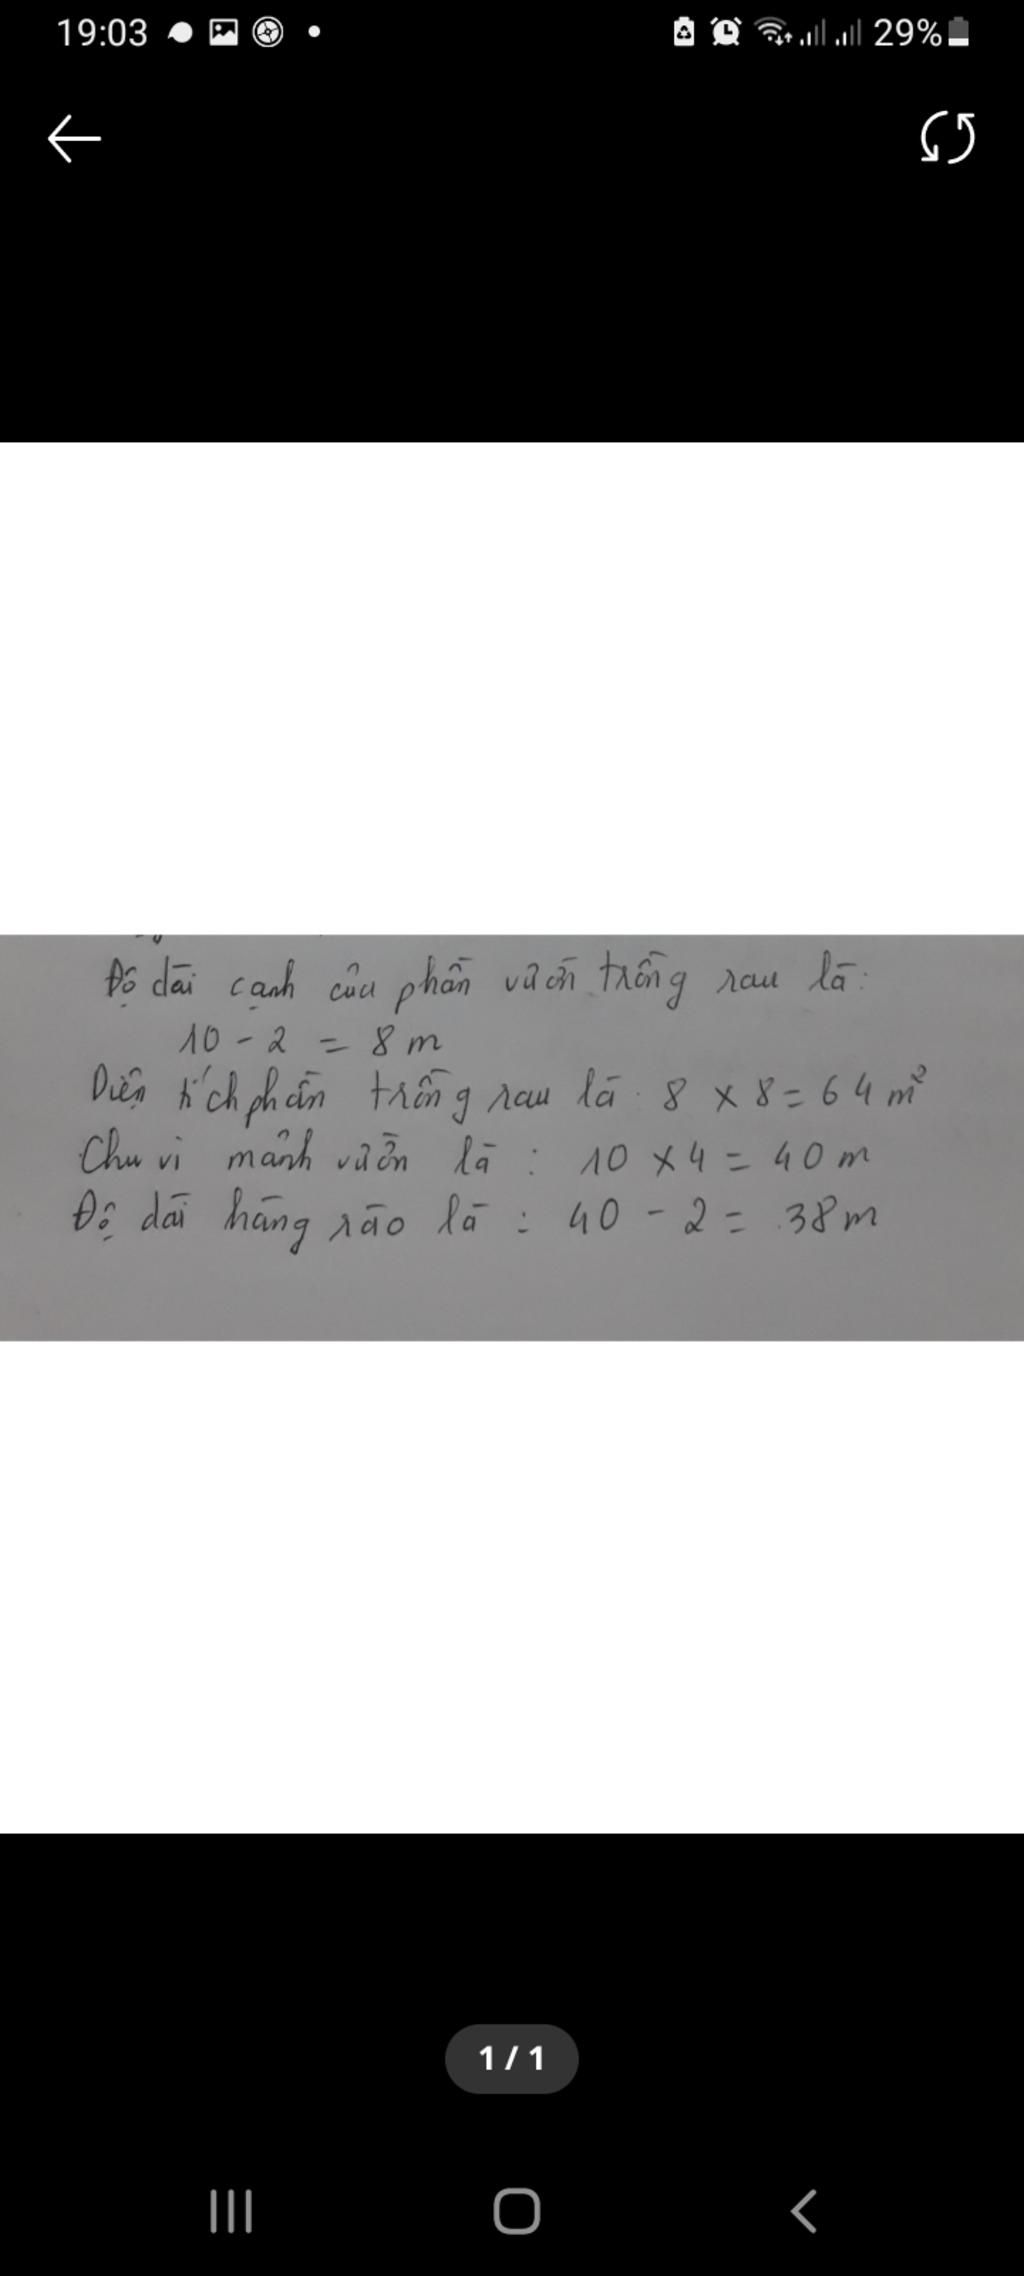 19:03
29%
Độ dài cạnh của phần vườn trồng rau là:
10 - 2 = 8 m
Diện tích phần trồng rau là: 8 x 8 = 64 m²
Chu vi mảnh vườn là : 10 x 4 = 40 m
Độ dài hàng rào là : 40 - 2 = 38 m
1 / 1